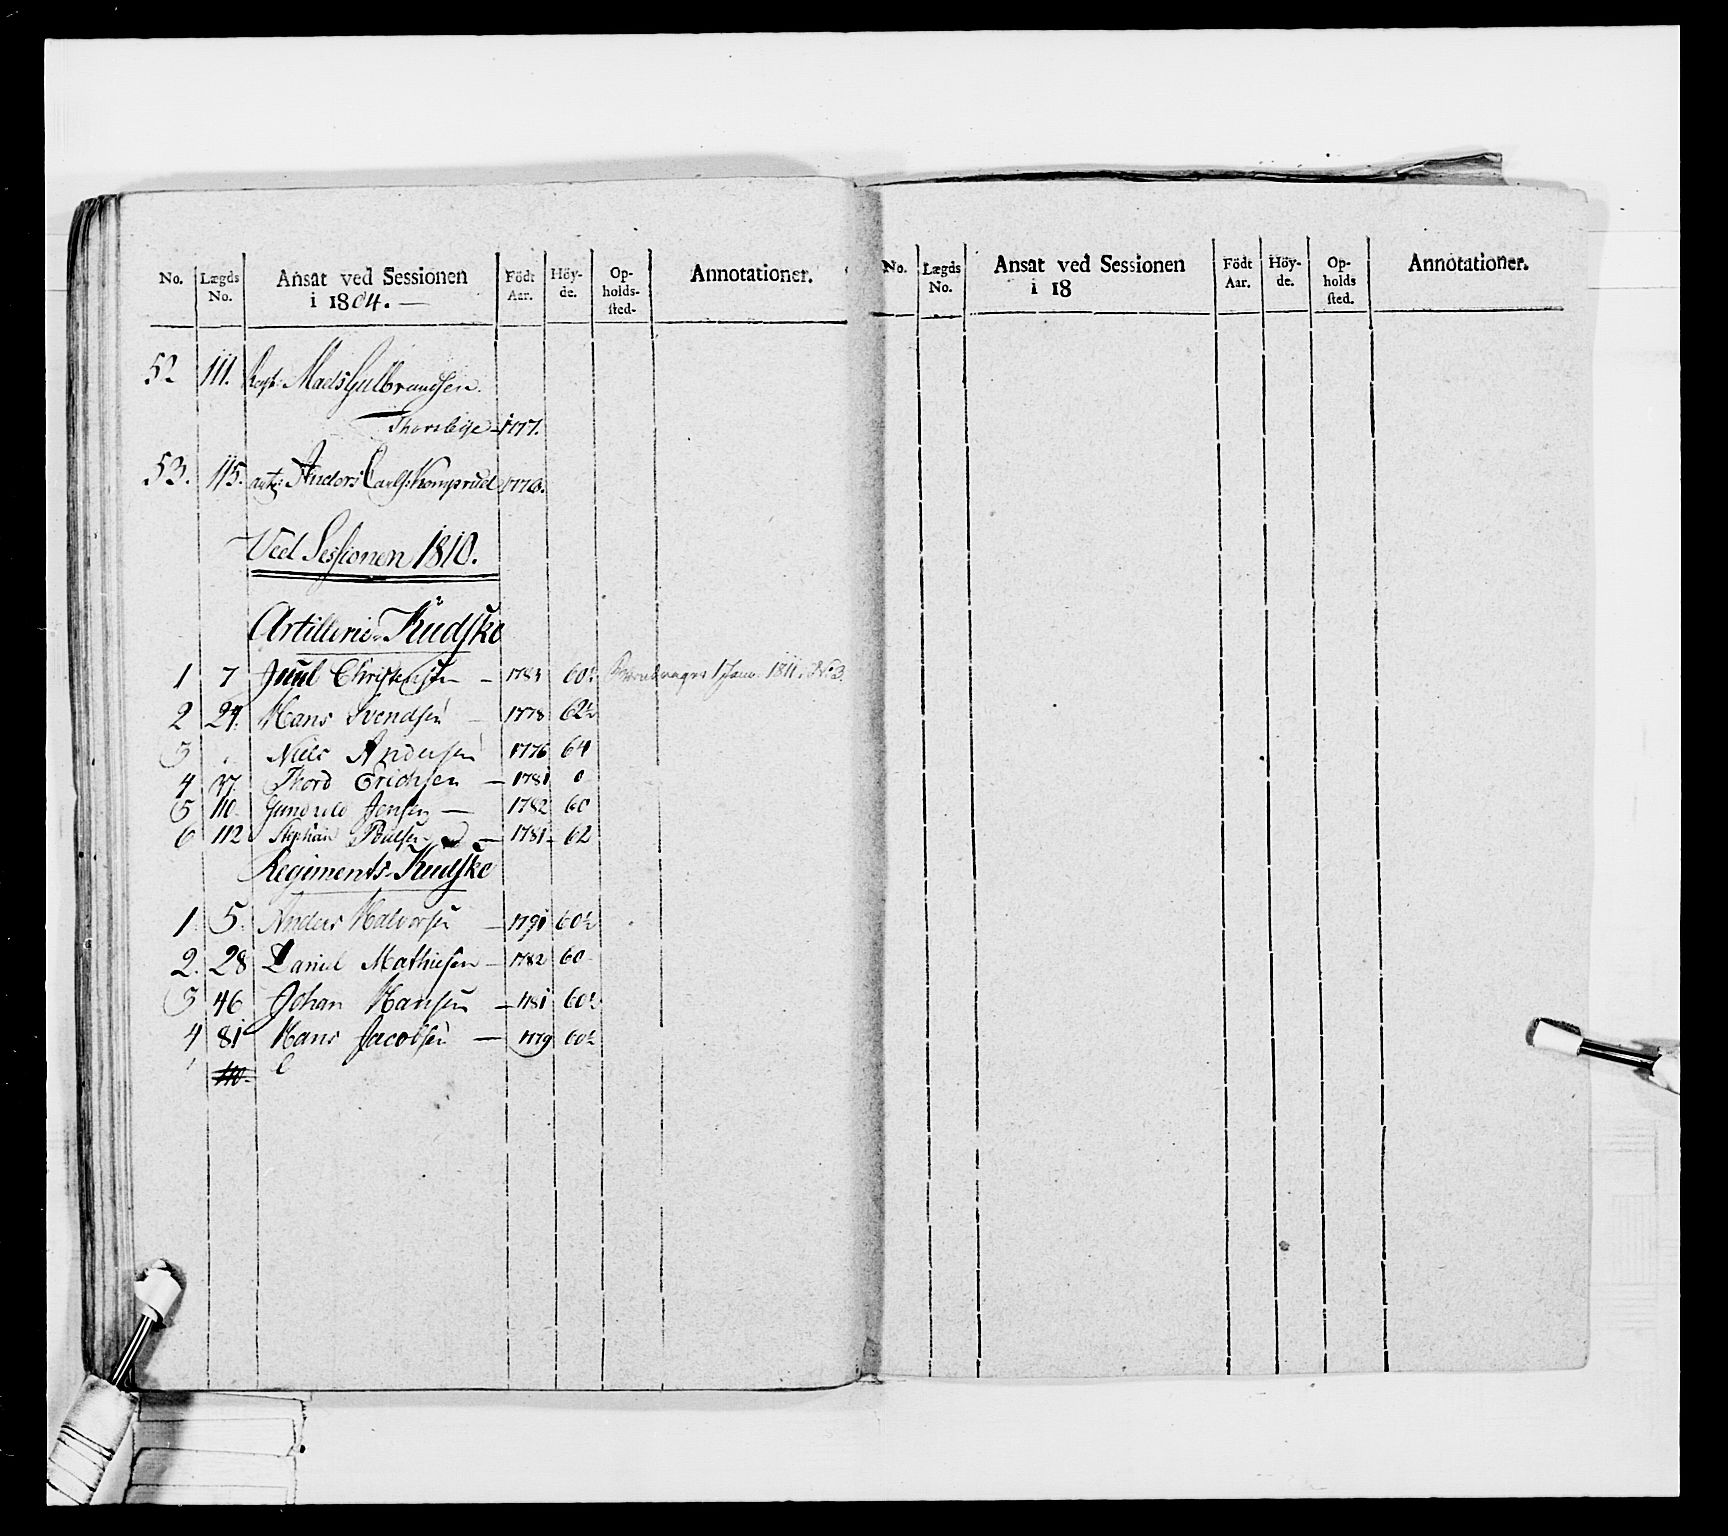 No. Lægds No. Ansat ved Sessionen i 1804. — Födt Aar. Höy- de. Op- holds- sted- Annotationer.
52 111. Regt: Mads Gulbrandsen
1777.
53. 115. art: Anders Carls: 1776.
Ved Sessionen 1810.
Artillerie-Kudske
1 7 Juul Christensen — 1783 60½ 1 Janv. 1811. No 3.
2 27. Hans Svendsen — 1778 62½
3 " Niels Andersen 1776 64
4 37. Thord Erichsen — 1781
5 110. Jensen — 1782 60
6 112 Stephan Poulsen — 1781. 62
Regiments-Kudske
1. 5. Anders Halvorsen — 1791 60½
2. 28 Daniel Mathiesen — 1782 60
3 46 Johan Hansen — 1781 60½
4 81 Hans Jacobsen — 1779 60½
110.
No. Lægds No. Ansat ved Sessionen i 18 Födt Aar. Höy- de. Op- holds sted. Annotationer.